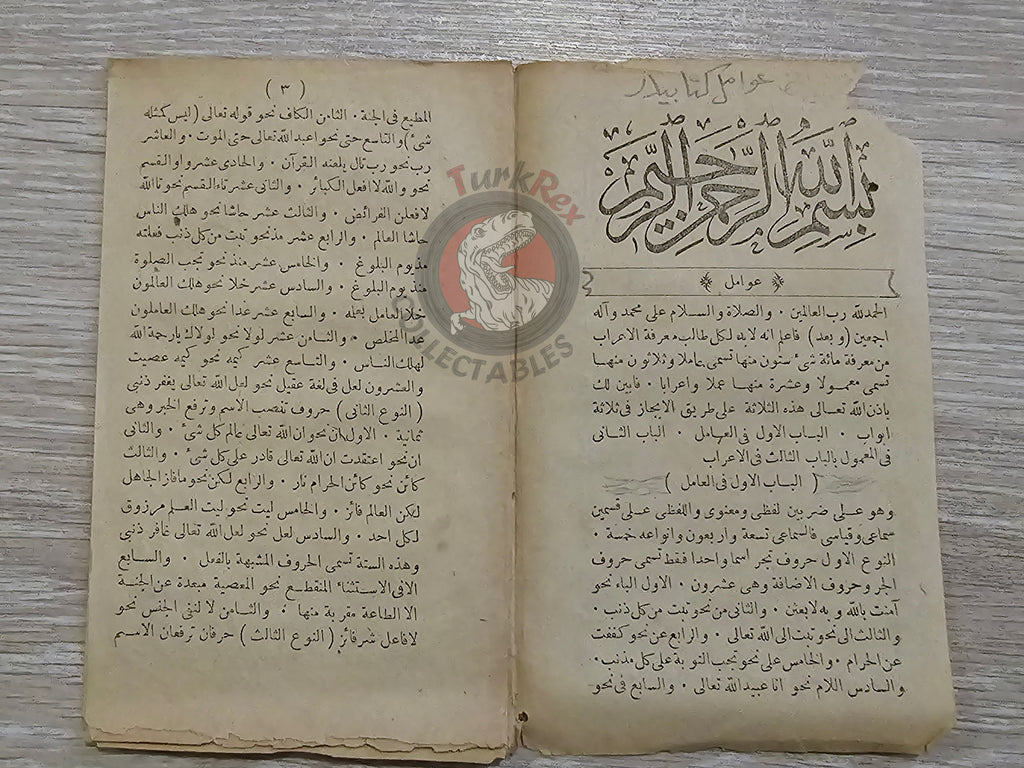 عوامل كتابيدر
بسم الله الرحمن الرحيم
عوامل
الحمدلله رب العالمين ٠ والصلاة والسلام على محمد وآله
اجمعين ( وبعد ) فاعلم انه لابد لكل طالب معرفة الاعراب
من معرفة مائة شئ ستون منها تسمى عاملا وثلاثون منها
تسمى معمولا وعشرة منها عملا واعرابا ٠ فابين لك
باذن الله تعالى هذه الثلاثة على طريق الايجاز فى ثلاثة
ابواب ٠ الباب الاول فى العامل ٠ الباب الثانى
فى المعمول ٠ الباب الثالث فى الاعراب
( الباب الاول فى العامل )
وهو على ضربين لفظى ومعنوى واللفظى على قسمين
سماعى وقياسى فالسماعى تسعة واربعون وانواعه خمسة ٠
النوع الاول حروف تجر اسما واحدا فقط تسمى حروف
الجر وحروف الاضافة وهى عشرون ٠ الاول الباء نحو
آمنت بالله وبه لابعثن ٠ والثانى من نحو تبت من كل ذنب ٠
والثالث الى نحو تبت الى الله تعالى ٠ والرابع عن نحو كففت
عن الحرام ٠ والخامس على نحو تجب التوبة على كل مذنب ٠
والسادس اللام نحو انا عبيد الله تعالى ٠ والسابع فى نحو
( ٣ )
المطيع فى الجنة ٠ الثامن الكاف نحو قوله تعالى ( ليس كمثله
شئ ) والتاسع حتى نحو اعبد الله تعالى حتى الموت ٠ والعاشر
رب نحو رب تال يلعنه القرآن ٠ والحادى عشر واو القسم
نحو والله لا افعل الكبائر ٠ والثانى عشر تاء القسم نحو تالله
لافعلن الفرائض ٠ والثالث عشر حاشا نحو هلك الناس
حاشا العالم ٠ والرابع عشر مذ نحو تبت من كل ذنب فعلته
مذ يوم البلوغ ٠ والخامس عشر منذ نحو تجب الصلوة
منذ يوم البلوغ ٠ والسادس عشر خلا نحو هلك العالمون
خلا العامل بعلمه ٠ والسابع عشر عدا نحو هلك العاملون
عدا المخلص ٠ والثامن عشر لولا نحو لولاك يارحمة الله
لهلك الناس ٠ والتاسع عشر كيمه نحو كيمه عصيت
والعشرون لعل فى لغة عقيل نحو لعل الله تعالى يغفر ذنبى
( النوع الثانى ) حروف تنصب الاسم وترفع الخبر وهى
ثمانية ٠ الاول ان نحو ان الله تعالى عالم كل شئ ٠ والثانى
ان نحو اعتقدت ان الله تعالى قادر على كل شئ ٠ والثالث
كأن نحو كأن الحرام نار ٠ والرابع لكن نحو مافاز الجاهل
لكن العالم فائز ٠ والخامس ليت نحو ليت العلم مرزوق
لكل احد ٠ والسادس لعل نحو لعل الله تعالى غافر ذنبى
وهذه الستة تسمى الحروف المشبهة بالفعل ٠ والسابع
الا فى الاستثناء المنقطع نحو المعصية مبعدة عن الجنة
الا الطاعة مقربة منها ٠ والثامن لا لنفى الجنس نحو
لافاعل شر فائز ( النوع الثالث ) حرفان ترفعان الاسم
TurkRex
COLLECTABLES